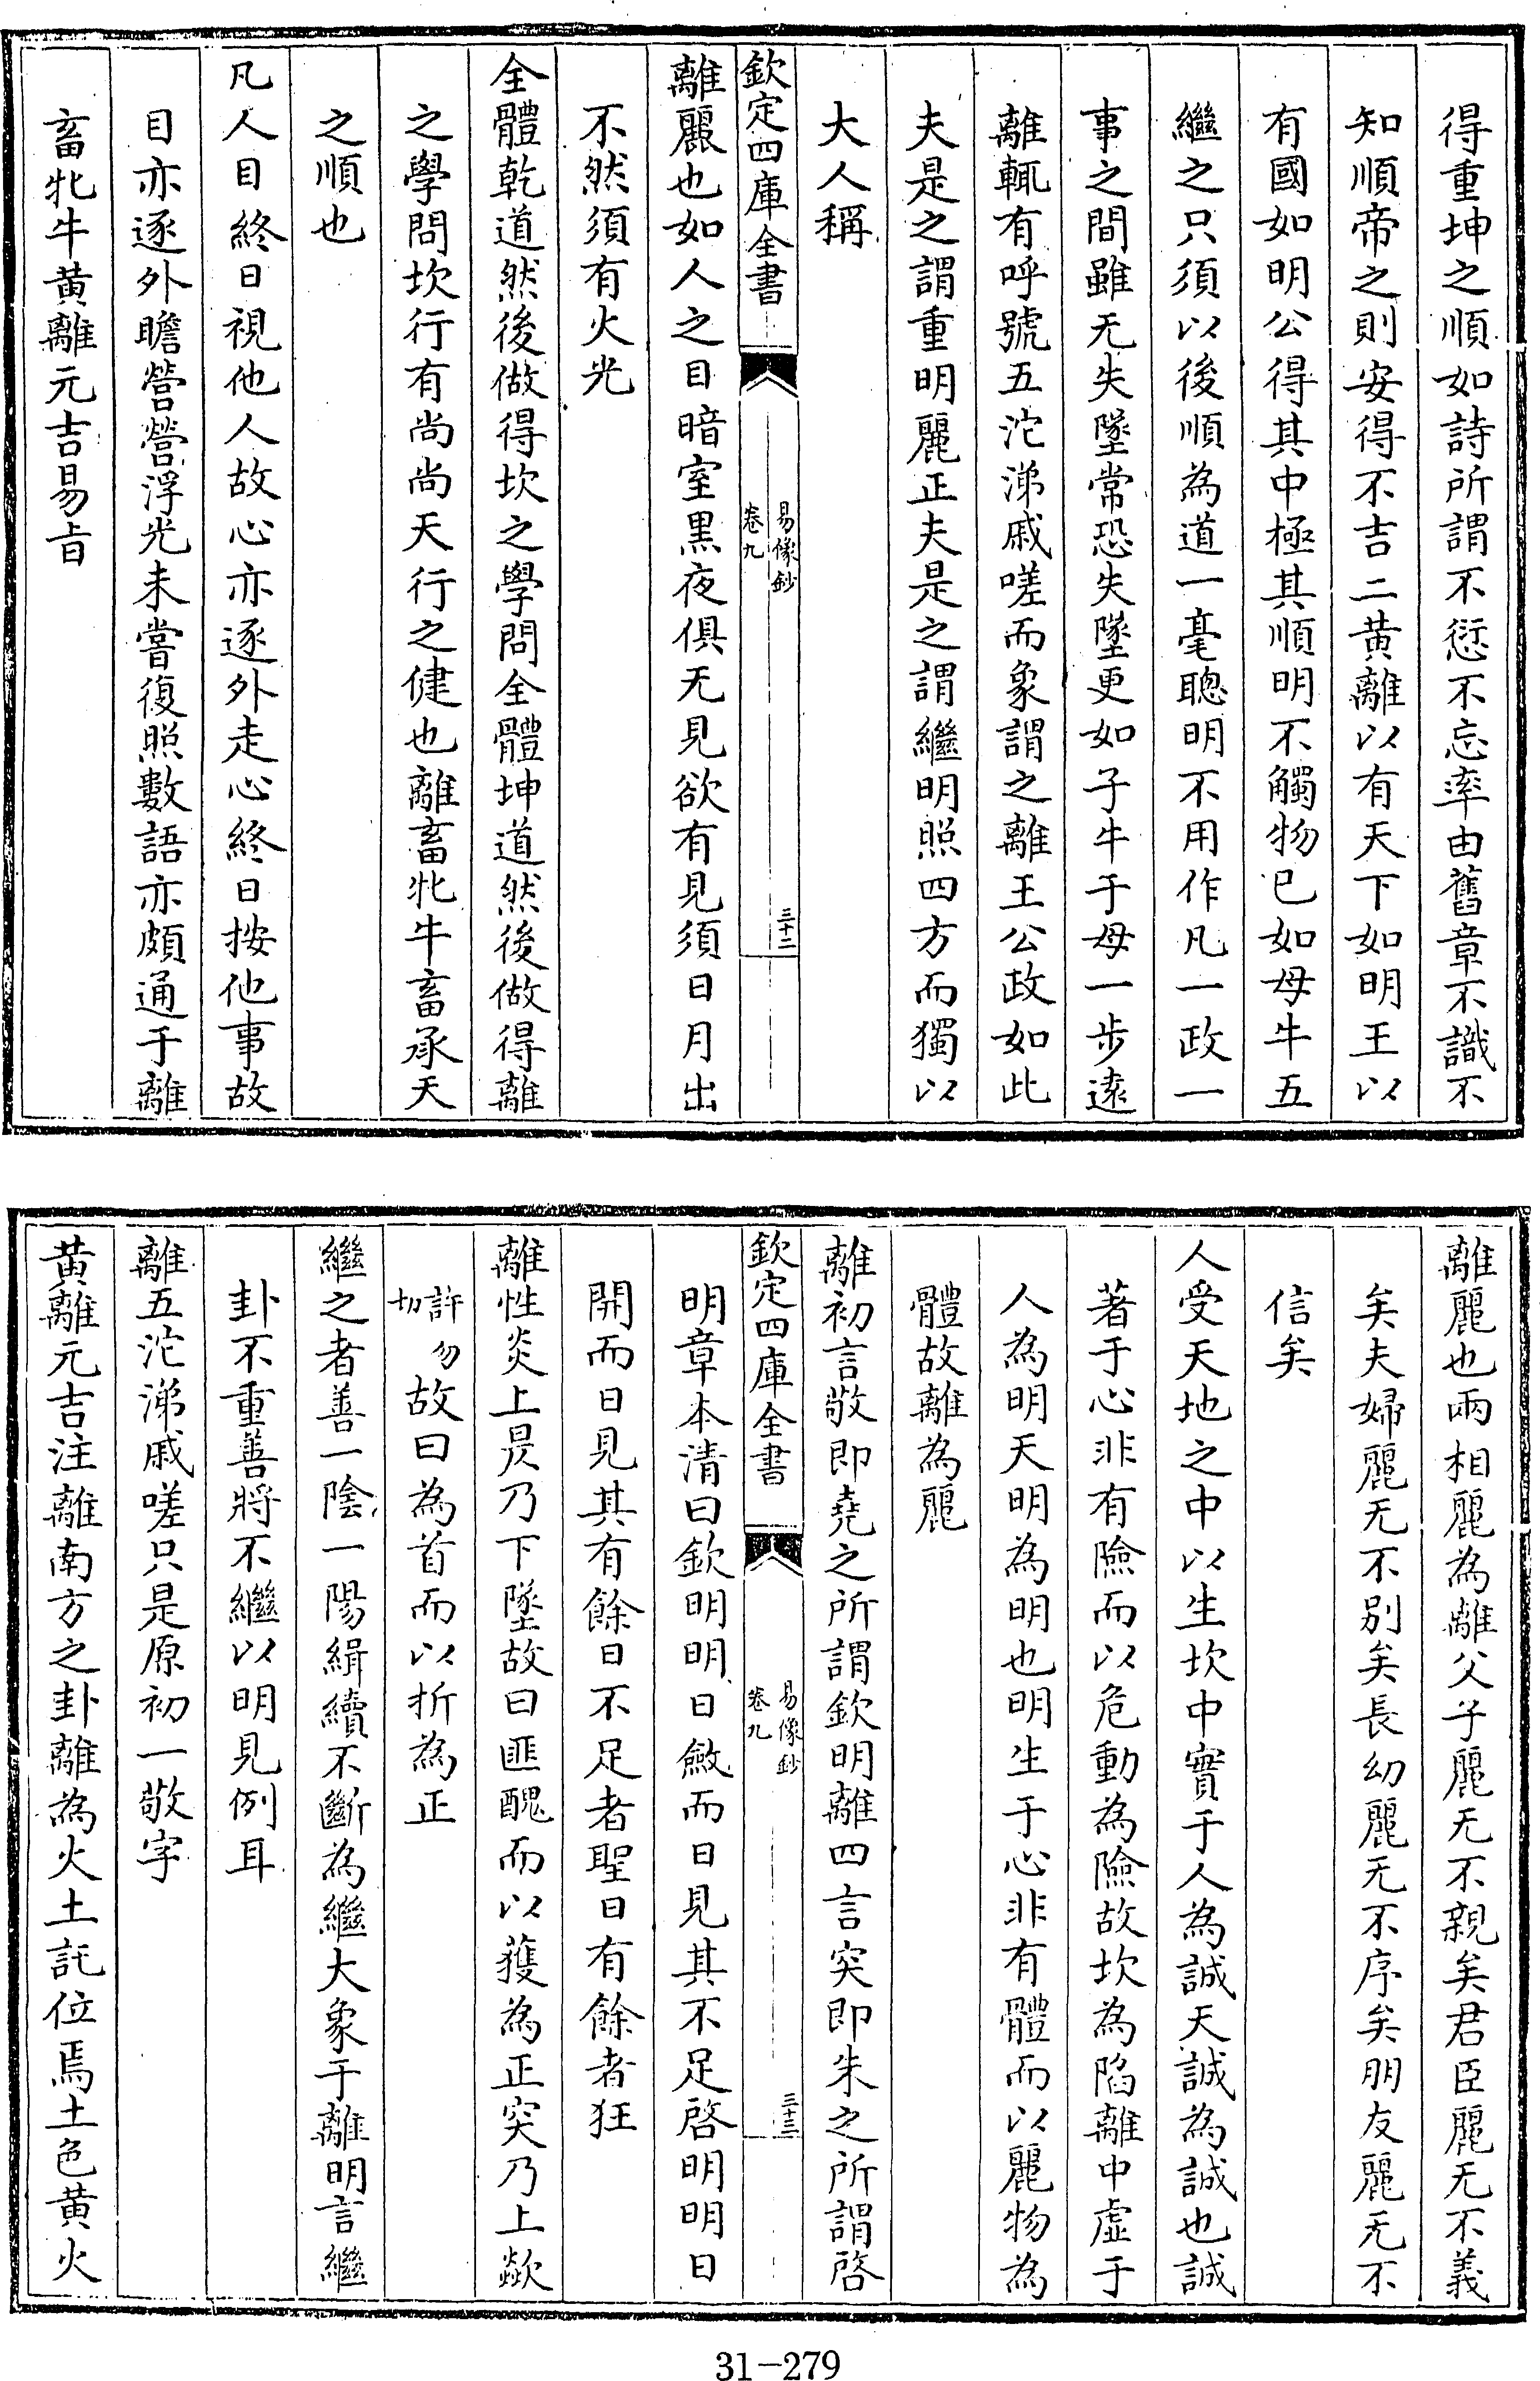 得重坤之順如詩所謂不愆不忘率由舊章不識不
知順帝之則安得不吉二黄離以有天下如明王以
有國如明公得其中極其順明不觸物已如母牛五
繼之只須以後順為道一毫聰明不用作凡一政一
事之間雖无失墜常恐失墜更如子牛于母一步遠
離輒有呼號五沱涕戚嗟而象謂之離王公政如此
夫是之謂重明麗正夫是之謂繼明照四方而獨以
大人稱
欽定四庫全書
易像鈔
卷九
三十二
離麗也如人之目暗室黒夜俱无見欲有見須日月出
不然須有火光
全體乾道然後做得坎之學問全體坤道然後做得離
之學問坎行有尚尚天行之健也離畜牝牛畜承天
之順也
凡人目終日視他人故心亦逐外走心終日按他事故
目亦逐外瞻營營浮光未嘗復照數語亦頗通于離
畜牝牛黄離元吉易㫖
離麗也兩相麗為離父子麗无不親矣君臣麗无不義
矣夫婦麗无不别矣長幼麗无不序矣朋友麗无不
信矣
人受天地之中以生坎中實于人為誠天誠為誠也誠
著于心非有險而以危動為險故坎為陷離中虛于
人為明天明為明也明生于心非有體而以麗物為
體故離為麗
離初言敬即堯之所謂欽明離四言突即朱之所謂啓
欽定四庫全書
易像鈔
卷九
三十三
明章本清曰欽明明日斂而日見其不足啓明明日
開而日見其有餘日不足者聖日有餘者狂
離性炎上昃乃下墜故曰匪醜而以獲為正突乃上歘
許勿切故曰為首而以折為正
繼之者善一陰一陽緝續不斷為繼大象于離明言繼
卦不重善將不繼以明見例耳
離五沱涕戚嗟只是原初一敬字
黄離元吉注離南方之卦離為火土託位焉土色黄火
31-279